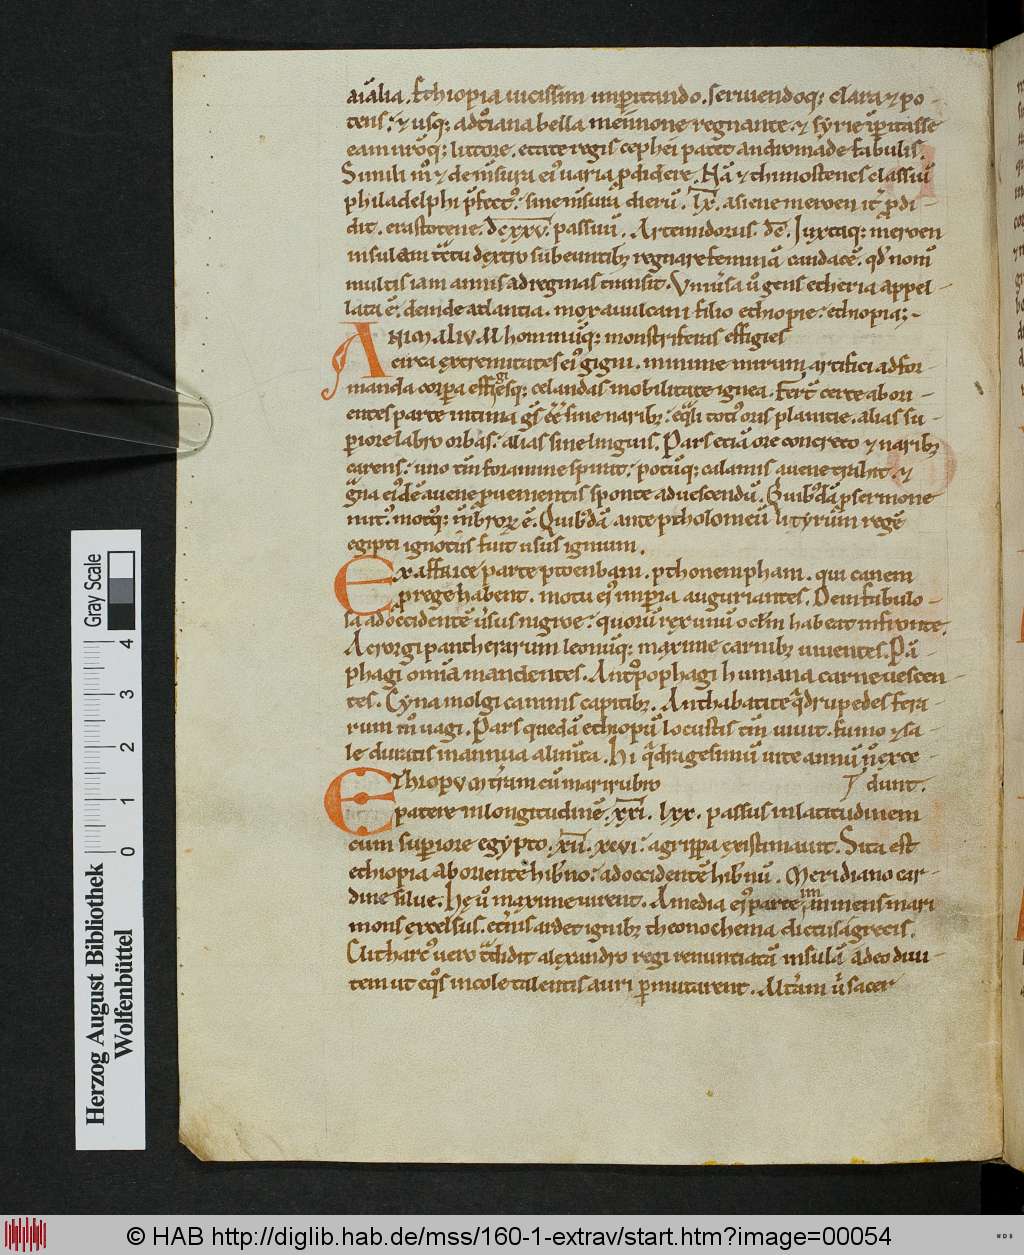 aiãlia. Ethiopia uicissim imp̱itando. seruiendoq; clara ⁊ po-
tens: ⁊ usq; ad t͛oiana bella mennone regnante. ⁊ syrie ip̃itasse
eam nr̃oq; littore. etate regis cephei patet andromade fabulis.
Simili m͛ ⁊ de m̃sura ei᷒ uaria p̱didere. Nã ⁊ thimostenes classiũ
philadelphi p̃fect᷒: sine m̃sura dierũ. lx̅. a siene meroen it͛ p̱di-
dit. erastotene. d̅c̅x̅x̅v̅. passuũ. Artemidorus. d̅c̅. Juxtaq; meroen
insulam t̃etu dextro subeuntib; regnare feminã candacẽ. qd̕ nom̃
multis iam annis ad reginas t͛nsiit. Vniũsa ũ gens etheria appel-
lata ẽ. deinde atlantia. mox a uulcani filio ethiope: ethiopia;
ANIMALIVM hominũq; monstriferas effigies
circa extremitates ei᷒ gigni. minime mirum artifici ad for-
manda corp̱a effigiesq; celandas mobilitate ignea. Fer̃t certe ab ori-
entes parte intima gs̃ ẽẽ sine narib;: eq̃li toti᷒ oris planitie. alias su-
p̱iore labro orbas: alias sine linguis. Pars etiã ore concreto ⁊ narib;
carens: uno tm̃ foramine spirat: potũq; calamis auene trahit: ⁊
g͛na ei᷒dẽ auene p̱uenientis sponte ad uescendũ. Quib᷒dã p̱ sermone
nut᷒. mot᷒q; m̃broꝝ ẽ. Quib᷒dã ante ptholomeũ lityrum regẽ
egipti ignotus fuit usus ignium.
Ex affrice parte ptoenbani. pthonempham. qui canem
p̱ rege habent. motu ei᷒ imp̱ia auguriantes. Dein fabulo-
sa ad occidentẽ ũsus nigroe: quorũ rex unũ oclm̃ habeat in fronte.
Acrorgi pantherarum leonũq; maxime carnib; uiuentes. Pã-
phagi omiã mandentes. Ant͛opophagi humana carne uescen-
tes. Cynamolgi caninis capitib;. Anthabatite q̃drupedes fera-
rum m̃ uagi. Pars quedã ethiopũ locustis tm̃ uiuit. fumo ⁊ sa-
le duratis in annua alim̃ta. Hi q̃dragesimũ uite annũ ñ exce-
Ethiopũ terram cũ mari rubro dunt.
patere in longitudinẽ. x̅x̅i̅. lxx. passus in latitudinem
cum sup̱iore egypto. x̅i̅i̅. xcvi: agrippa existimauit. Sita est
ethiopia ab oriente hib̃no: ad occidentẽ hib̃nũ. Meridiano car-
dine silue. Hẹ ũ maxime uirent. A media ei᷒ parte imminens mari
mons excelsus. et̃nis ardet ignib; theonochema dictus a grecis.
Clithar᷒ uero t͛didit alexandro regi renuntiatã insulã adeo diui-
tem ut eq᷒s incole talentis auri p̱mutarent. Alt͛am ũ sacer
Herzog August Bibliothek
Wolfenbüttel
Gray Scale
0 1 2 3 4
© HAB http://diglib.hab.de/mss/160-1-extrav/start.htm?image=00054